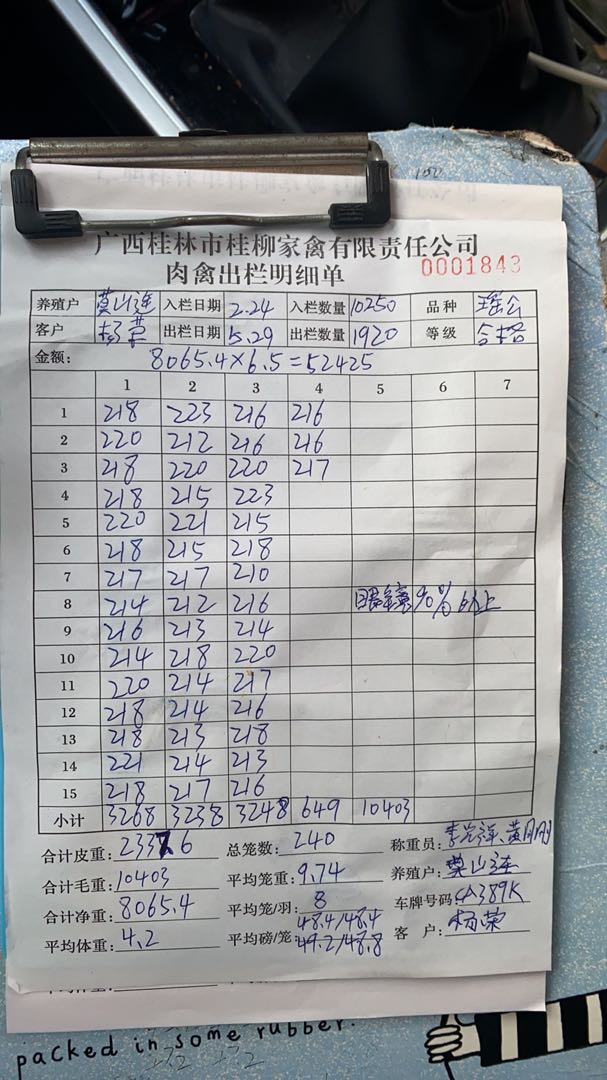 广西桂林市桂柳家禽有限责任公司
肉禽出栏明细单 0001843
养殖户 莫山连 入栏日期 2.24 入栏数量 10250 品种 瑶公
客户 杨荣 出栏日期 5.29 出栏数量 1920 等级 合格
金额: 8065.4×6.5=52425
1 2 3 4 5 6 7
1 218 223 216 216
2 220 212 216 216
3 218 220 220 217
4 218 215 223
5 220 221 215
6 218 215 218
7 217 217 210
8 214 212 216 90% 以上
9 216 213 214
10 214 218 220
11 220 214 217
12 218 214 216
13 218 213 218
14 221 214 213
15 218 217 216
小计 3268 3238 3248 649 10403
合计皮重: 2337.6 总笼数: 240 称重员:
合计毛重: 10403 平均笼重: 9.74 养殖户: 莫山连
合计净重: 8065.4 平均笼/羽: 8 车牌号码: A389K
平均体重: 4.2 平均磅/笼: 48.4/48.4 49.2/48.8 客 户: 杨荣
packed in some rubber.